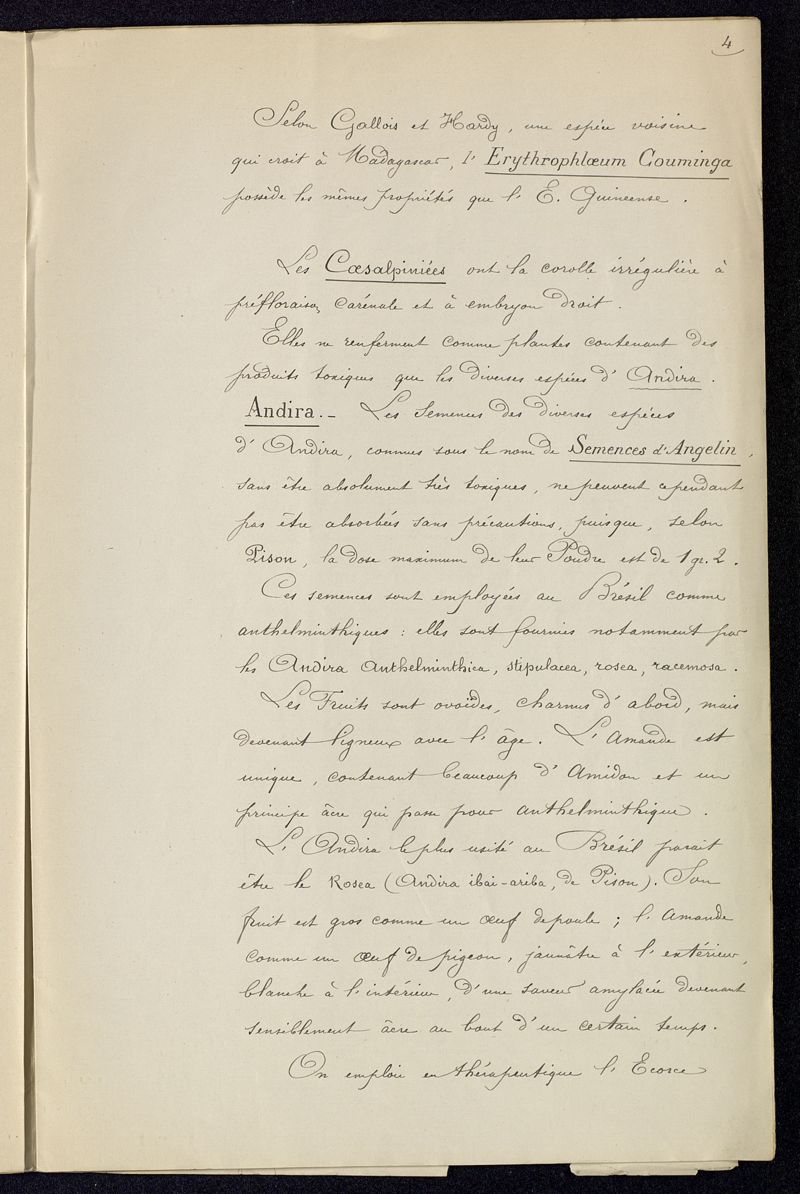 4
Selon Gallois et Hardy, une espèce voisine
qui croit à Madagascar, l' Erythrophlœum Couminga
possède les mêmes propriétés que l' E. Guineense.
Les Cœsalpiniées ont la corolle irrégulière à
préfloraison carénale et à embryon droit.
Elles ne renferment comme plantes contenant des
produits toxiques que les diverses espèces d' Andira.
Andira.- Les Semences des diverses espèces
d' Andira, connues sous le nom de Semences d'Angelin,
sans être absolument très toxiques, ne peuvent cependant
pas être absorbées sans précautions, puisque, selon
Pison, la dose maximum de leur Poudre est de 1 gr. 2.
Ces semences sont employées au Brésil comme
anthelminthiques : elles sont fournies notamment par
les Andira Anthelminthica, stipulacea, rosea, racemosa.
Les Fruits sont ovoïdes, charnus d' abord, mais
devenant ligneux avec l' âge. L' Amande est
unique, contenant beaucoup d' Amidon et un
principe âcre qui passe pour anthelminthique.
L' Andira le plus usité au Brésil parait
être le Rosea (Andira ibai-ariba, de Pison). Son
fruit est gros comme un œuf de poule ; l' Amande
comme un œuf de pigeon, jaunâtre à l' extérieur,
blanche à l' intérieur, d' une saveur amylacée devenant
sensiblement âcre au bout d' un certain temps.
On emploie en thérapeutique l' Ecorce